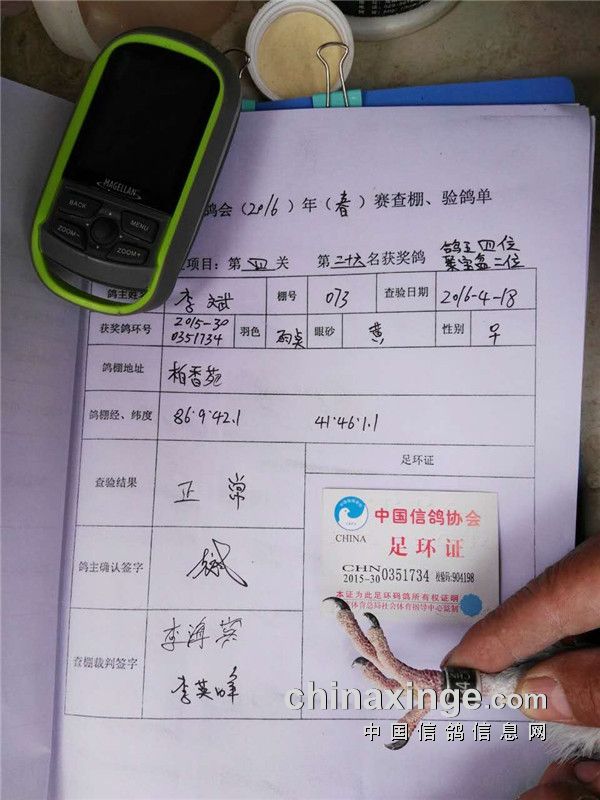 MAGELLAN
BACK
MENU
ZOOM-
ZOOM+
鸽会（2016）年（春）赛查棚、验鸽单
项目：第 四 关 第 二十六 名获奖鸽 鸽王四位
聚宝盆二位
鸽主姓名 李斌 棚号 073 查验日期 2016-4-18
获奖鸽环号 2015-30
0351734 羽色 眼砂 黄 性别 早
鸽棚地址 柏香苑
鸽棚经、纬度 86·9·42.1 41·46·1.1
足环证
查验结果 正常
鸽主确认签字
查棚裁判签字
李英峰
中国信鸽协会
CHINA
足环证
CHN
2015-30 0351734 校验码:904198
本证为此足环码鸽所有权证明
体育总局社会体育指导中心监制
chinaxinge.com
中国信鸽信息网